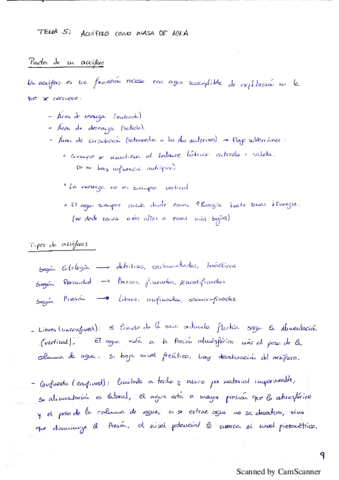 TEMA 5: ACUÍFERO COMO MASA DE AGUA
Partes de un acuífero
Un acuífero es una formación rocosa con agua susceptible de explotación en la
que se reconoce:
- Área de recarga (entrada)
- Área de descarga (salida)
- Área de circulación (intermedia a las dos anteriores) → Flujo subterráneo:
• Siempre se mantiene el balance hídrico entrada - salida.
(si no hay influencia antrópica).
• La recarga no es siempre vertical
• El agua siempre circula desde zonas ↑Energía hasta zonas ↓Energía.
(va desde zonas más altas a zonas más bajas)
Tipos de acuíferos
Según Litología → detríticos, carbonatados,
Según Porosidad → Porosos, fisurados, karstificados
Según Presión → Libres, confinados, semiconfinados.
- Libres (unconfined): el límite de la zona saturada fluctúa según la alimentación
(vertical). El agua está a la Presión atmosférica más el peso de la
columna de agua. Si baja nivel freático, hay desaturación del acuífero.
- Confinado (confined): limitado a techo y muro por material impermeable,
su alimentación es lateral, el agua está a mayor presión que la atmosférica
y el peso de la columna de agua, si se extrae agua no se desatura, sino
que disminuye la Presión, el nivel potencial lo marca el nivel piezométrico.
9
Scanned by CamScanner